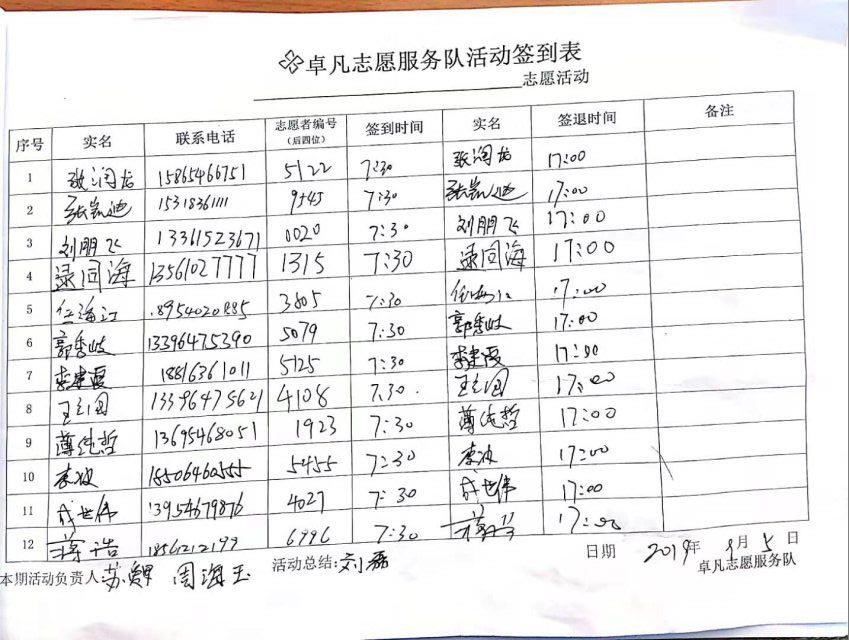 卓凡志愿服务队活动签到表
志愿活动
序号 实名 联系电话 志愿者编号（后四位） 签到时间 实名 签退时间 备注
1 张润龙 15865466751 5122 7:30 张润龙 17:00
2 张凯迪 15318361111 9545 7:30 张凯迪 17:00
3 刘朋飞 13361523671 0020 7:30 刘朋飞 17:00
4 逯同海 13561027777 1315 7:30 逯同海 17:00
5 任海江 18954020885 3805 7:30 任海江 17:00
6 郭秀岐 13396475390 5079 7:30 郭秀岐 17:00
7 李建霞 18816361011 5125 7:30 李建霞 17:00
8 13396475621 4108 7:30 17:00
9 薄纯哲 13695468051 1923 7:30 薄纯哲 17:00
10 李波 15506460555 5455 7:30 李波 17:00
11 成世伟 13954679876 4027 7:30 成世伟 17:00
12 蒋浩 18562121199 6996 7:30 17:00
本期活动负责人: 苏 周海玉 活动总结:刘磊 日期 2019年 月5日
卓凡志愿服务队